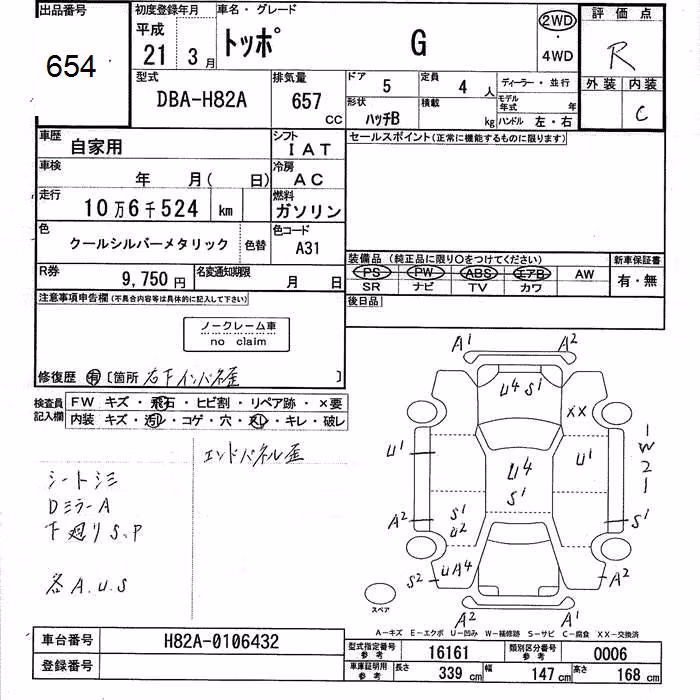 出品番号
654
初度登録年月
平成
21 3 月
車名・グレード
トッポ G
2WD
4WD
評価点
R
外装 内装
C
型式
DBA-H82A
排気量
657 CC
ドア 5
定員 4 人
形状 ハッチB
積載 kg
ディーラー・並行
モデル年式 年
ハンドル 左・右
車歴
自家用
シフト
IAT
セールスポイント(正常に機能するものに限ります)
車検
年 月( 日)
冷房
AC
走行
10万6千524 km
燃料
ガソリン
色
クールシルバーメタリック
色替
色コード
A31
装備品(純正品に限り○をつけてください)
新車保証書
PS PW ABS エアB AW
SR ナビ TV カワ
有・無
R券
9,750 円
名変通知期限
月 日
後日品
注意事項申告欄(不具合内容等は具体的に記入して下さい)
ノークレーム車
no claim
修復歴 有 [箇所 右下インパネ歪 ]
検査員記入欄
FW キズ・飛石・ヒビ割・リペア跡・×要
内装 キズ・汚レ・コゲ・穴・スレ・キレ・破レ
エンドパネル歪
シートシミ
DミラーA
下廻りS.P
各A.U.S
A1 A2
U4 S1
XX
U1 U4 U1
S1
1
W2
1
A2 S1 S1
U2
S2 UA4 A2
A2 A1
スペア
A-キズ E-エクボ U-凹み W-補修跡 S-サビ C-腐食 XX-交換済
車台番号
H82A-0106432
登録番号
型式指定番号 参考
16161
類別区分番号 参考
0006
車庫証明用 参考
長さ 339 cm 幅 147 cm 高さ 168 cm